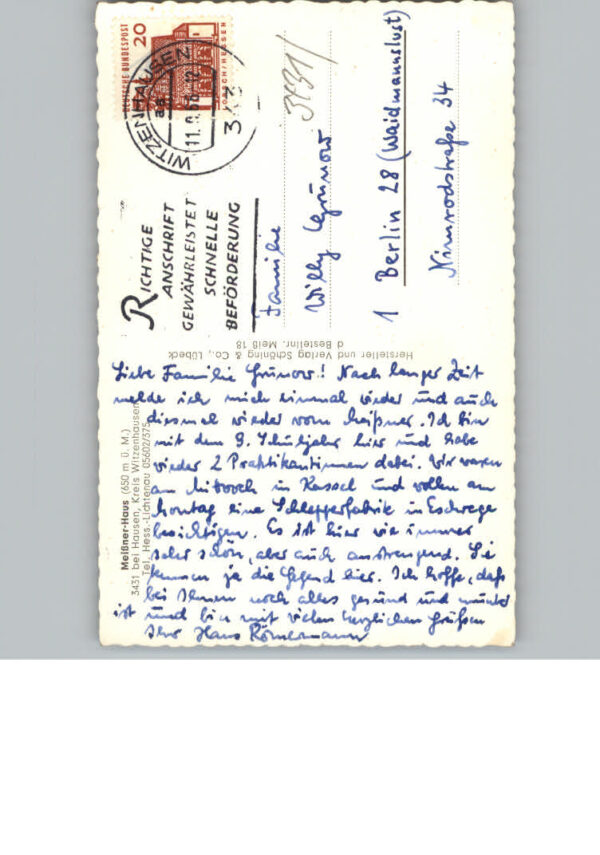 DEUTSCHE BUNDESPOST
20
LORSCH/HESSEN
WITZENHAUSEN
343
RICHTIGE
ANSCHRIFT
GEWÄHRLEISTET
SCHNELLE
BEFÖRDERUNG
3431/
Familie
Willy Grunow
1 Berlin 28 (Waidmannslust)
Nimrodstraße 34
Hersteller und Verlag Schöning & Co., Lübeck
d Bestellnr. Meiß 18
Meißner-Haus (650 m ü. M.)
3431 bei Hausen, Kreis Witzenhausen
Tel. Hess.-Lichtenau 05602/375
Liebe Familie Grunow! Nach langer Zeit
melde ich mich einmal wieder und auch
diesmal wieder vom Meißner. Ich bin
mit dem 9. Schuljahr hier und habe
wieder 2 Praktikantinnen dabei. Wir waren
am Mittwoch in Kassel und wollen am
Montag eine Schlepperfabrik in Eschwege
besichtigen. Es ist hier wie immer
sehr schön, aber auch anstrengend. Sie
kennen ja die Gegend hier. Ich hoffe, daß
bei Ihnen noch alles gesund und munter
ist und bin mit vielen herzlichen Grüßen
Ihr Hans